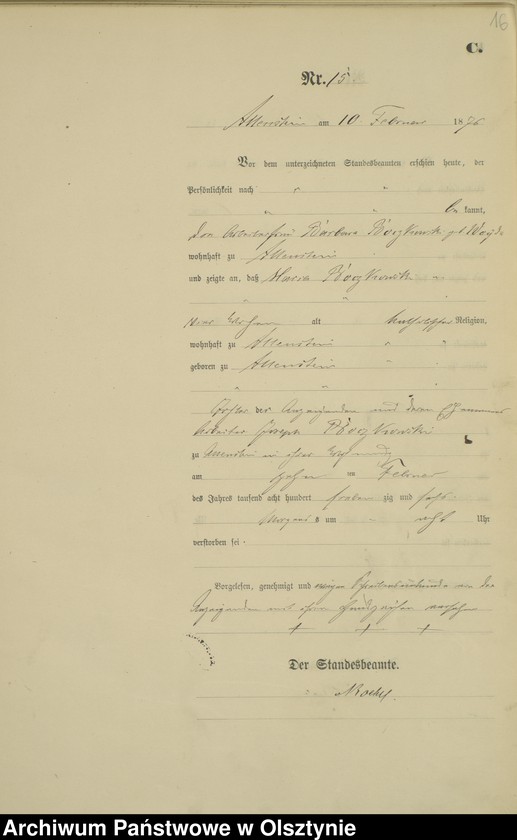 16
C.
Nr. 15
Allenstein am 10 Februar 1876
Vor dem unterzeichneten Standesbeamten erschien heute, der
Persönlichkeit nach
be kannt,
die Arbeiterfrau Barbara
wohnhaft zu Allenstein
und zeigte an, daß Maria
alt katholischer Religion,
wohnhaft zu Allenstein
geboren zu Allenstein
Tochter der Anzeigenden und deren Ehemannes
Arbeiter Joseph
zu Allenstein in ihrer Wohnung
am zehn ten Februar
des Jahres tausend acht hundert sieben zig und sechs
Morgens um acht Uhr
verstorben sei.
Vorgelesen, genehmigt und von der
Anzeigenden mit ihrem Handzeichen versehen
+ + +
Der Standesbeamte.
Archiwum Państwowe w Olsztynie